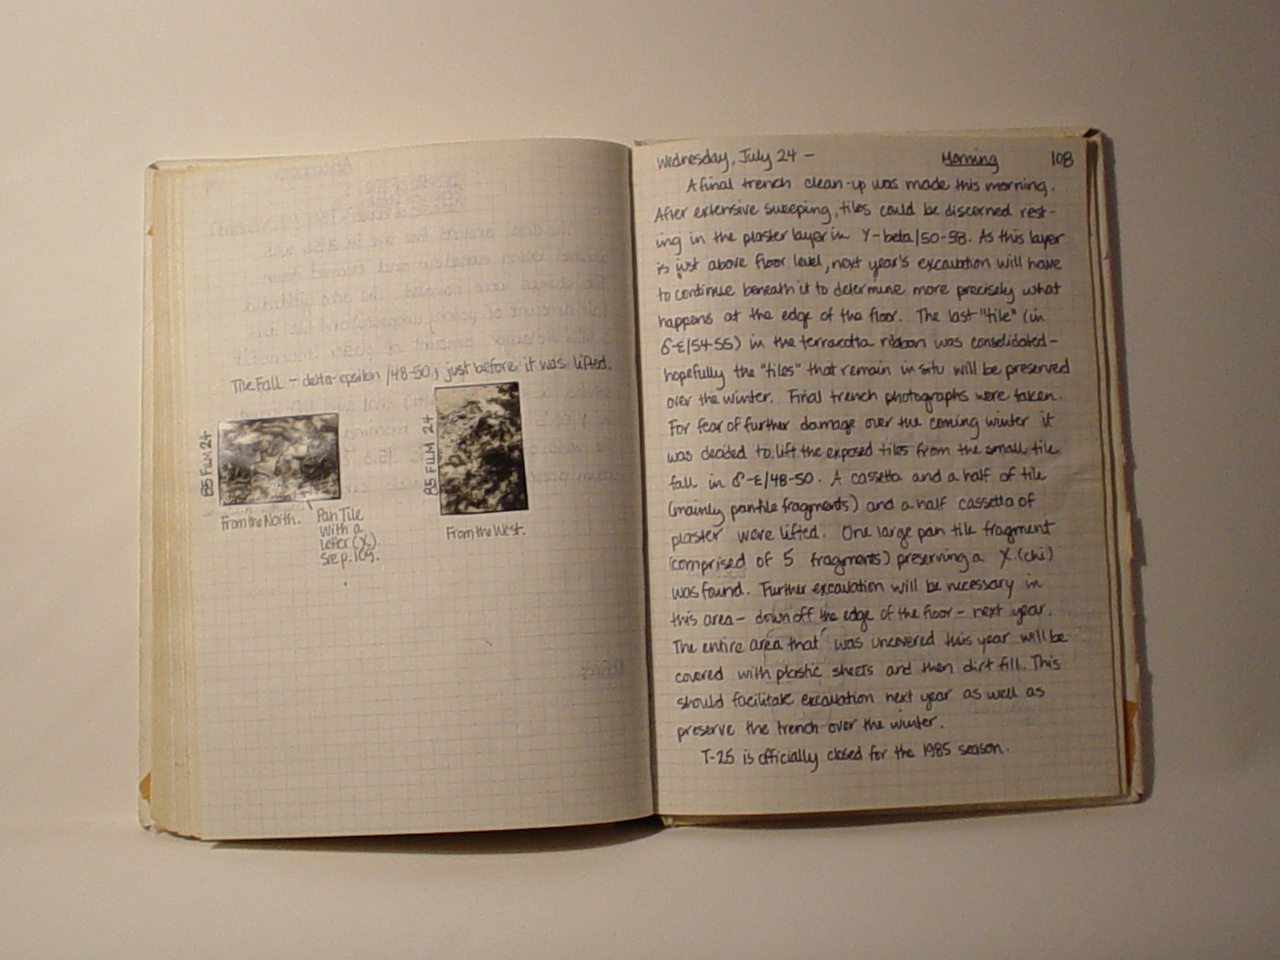 The Fall – delta-epsilon /48-50, just before it was lifted.
85 FILM 24
From the North.
Pan Tile
With a
letter (X).
See p. 109.
85 FILM 24
From the West.
Wednesday, July 24 – Morning 108
A final trench clean-up was made this morning.
After extensive sweeping, tiles could be discerned rest-
ing in the plaster layer in Y-beta/50-58. As this layer
is just above floor level, next year's excavation will have
to continue beneath it to determine more precisely what
happens at the edge of the floor. The last "tile" (in
δ-ε/54-55) in the terracotta ribbon was consolidated –
hopefully the "tiles" that remain in situ will be preserved
over the winter. Final trench photographs were taken.
For fear of further damage over the coming winter it
was decided to lift the exposed tiles from the small tile
fall in δ-ε/48-50. A cassetta and a half of tile
(mainly pantile fragments) and a half cassetta of
plaster were lifted. One large pan tile fragment
(comprised of 5 fragments) preserving a X (chi)
was found. Further excavation will be necessary in
this area – down off the edge of the floor – next year.
The entire area that was uncovered this year will be
covered with plastic sheets and then dirt fill. This
should facilitate excavation next year as well as
preserve the trench over the winter.
T-25 is officially closed for the 1985 season.